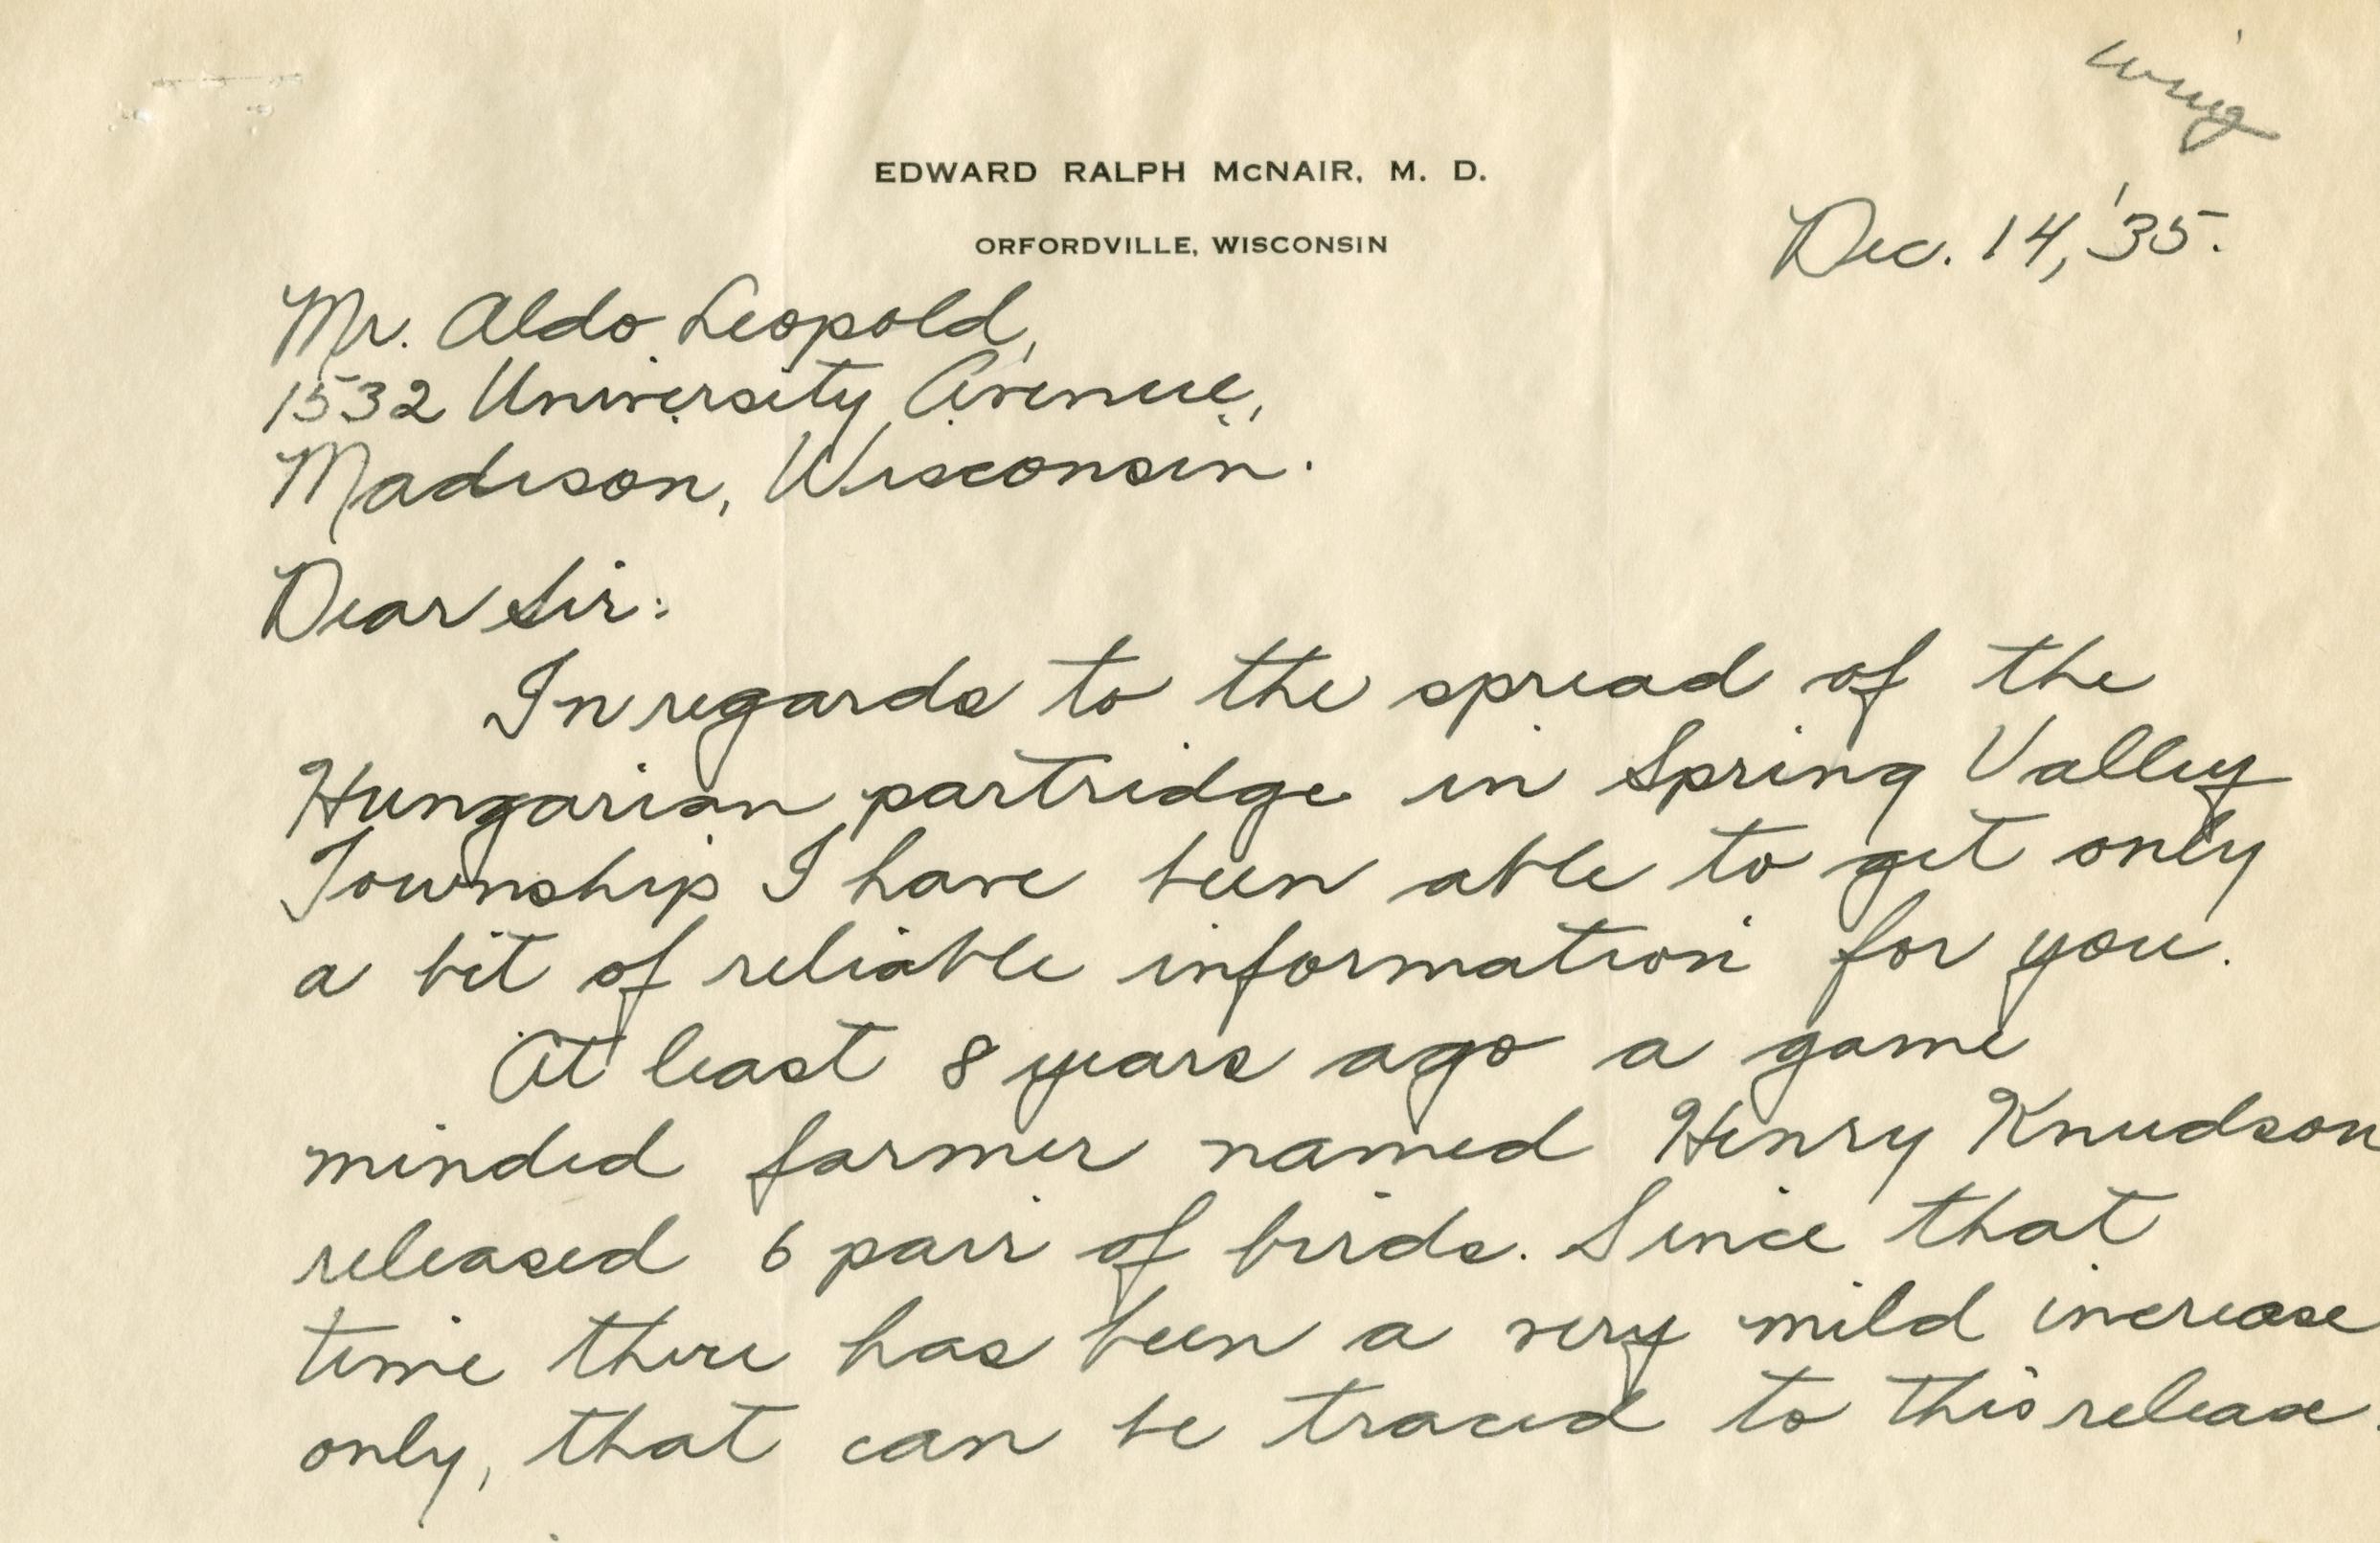 wing
EDWARD RALPH McNAIR, M. D.
ORFORDVILLE, WISCONSIN
Dec. 14, '35.
Mr. Aldo Leopold,
1532 University Avenue,
Madison, Wisconsin.
Dear Sir:
In regards to the spread of the
Hungarian partridge in Spring Valley
Township I have been able to get only
a bit of reliable information for you.
At least 8 years ago a game
minded farmer named Henry Knudson
released 6 pair of birds. Since that
time there has been a very mild increase
only, that can be traced to this release.